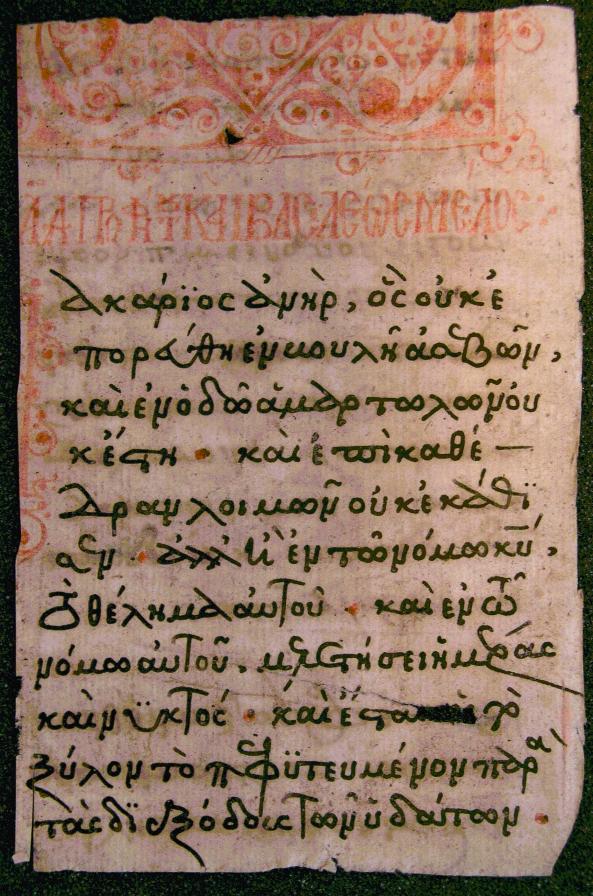 ΔΑΠΡΗΤ ΚΑΙ ΒΑΣΛΕΩΣ ΜΕΛΟΣ:
ακάρϊος ἀνὴρ, ὃς οὐκ ἐ
πορεύθη ἐν κουλῆ ἀσεβῶν,
καὶ ἐν ὁδῶ ἁμαρτωλῶν οὐ
κ ἔστη · καὶ ἐπὶ καθέ —
δραν λοιμῶν οὐκ ἐκάθϊ
σεν · ἀλλ ἢ ἐν τῶ νόμω κῦ,
τὸ θέλημα αὐτοῦ · καὶ ἐν τῶ
νόμω αὐτοῦ, μελετήσει ἡμέρας
καὶ νϋκτός · καὶ ἔσται ὡς τὸ
ξύλον τὸ πεφϋτευμένον παρὰ
τὰς δϊεξόδους τῶν ὑδάτων ·